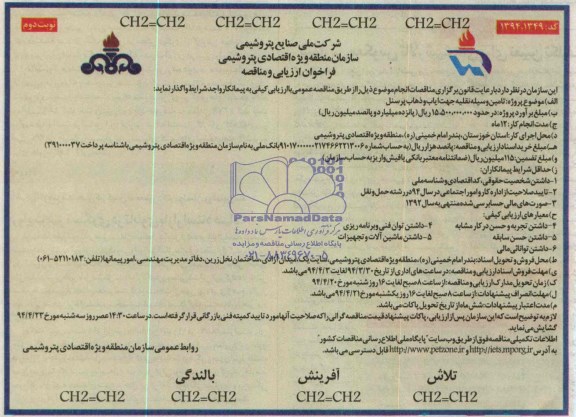 CH2=CH2 CH2=CH2 CH2=CH2 CH2=CH2
کد: ۱۳۹۴،۱۳۴۹
نوبت دوم
شرکت ملی صنایع پتروشیمی
سازمان منطقه ویژه اقتصادی پتروشیمی
فراخوان ارزیابی و مناقصه
این سازمان در نظر دارد با رعایت قانون برگزاری مناقصات انجام موضوع ذیل را از طریق مناقصه عمومی با ارزیابی کیفی به پیمانکار واجد شرایط واگذار نماید:
الف) موضوع پروژه: تامین وسیله نقلیه جهت ایاب و ذهاب پرسنل
ب) مبلغ برآورد پروژه: در حدود ۱۵،۵۰۰،۰۰۰،۰۰۰ ریال (پانزده میلیارد و پانصد میلیون ریال)
ج) مدت انجام کار: ۱۲ ماه
د) محل اجرای کار: استان خوزستان، بندر امام خمینی (ره)، منطقه ویژه اقتصادی پتروشیمی
هـ) مبلغ خرید اسناد ارزیابی و مناقصه: پانصد هزار ریال (به حساب شماره بانک ملی به نام سازمان منطقه ویژه اقتصادی پتروشیمی با شناسه پرداخت ۳۹۱۰۰۰۰۳۷)
و) مبلغ تضمین: ۵۱۱ میلیون ریال (ضمانتنامه معتبر بانکی یا فیش واریز به حساب سازمان)
ز) حداقل شرایط پیمانکاران:
۱- داشتن شخصیت حقوقی، کد اقتصادی و شناسه ملی
۲- تایید صلاحیت از اداره کار و امور اجتماعی در سال ۹۴ در رشته حمل و نقل
۳- صورت های مالی حسابرسی شده منتهی به سال ۱۳۹۲
ح) معیارهای ارزیابی کیفی:
۱- داشتن تجربه و حسن در کار مشابه ۴- داشتن توان فنی و برنامه ریزی
۲- داشتن حسن سابقه ۵- داشتن ماشین آلات و تجهیزات
۳- داشتن توانائی مالی
ParsNamadData
پایگاه اطلاع رسانی مناقصه و مزایده
۰۲۱-۸۸۳۴۹۶۷۰-۵
ط) محل فروش و تحویل اسناد: بندر امام خمینی (ره)، منطقه ویژه اقتصادی پتروشیمی، سایت یک، میدان آزادی، ساختمان نخل زرین، دفاتر مدیریت مهندسی، امور پیمانها (تلفن: ۵۲۱۱۰۱۸۳-۰۶۱)
ی) مهلت فروش اسناد ارزیابی و مناقصه: در ساعت های اداری از تاریخ ۹۴/۳/۳۰ لغایت ۹۴/۴/۳ می باشد.
ک) زمان تحویل مدارک ارزیابی و مناقصه: از ساعت ۸ صبح لغایت ۱۶ روز شنبه مورخ ۹۴/۴/۲۰
ل) مهلت انصراف پیشنهادات: از ساعت ۸ صبح لغایت ۱۶ روز یکشنبه مورخ ۹۴/۴/۲۱ می باشد.
م) مدت اعتبار پیشنهادات: شش ماه از تاریخ تحویل پاکات می باشد.
لازم به توضیح است که این سازمان پس از ارزیابی، پاکات پیشنهاد قیمت مناقصه گرانی را که صلاحیت آنها مورد تایید کمیته فنی بازرگانی قرار گرفته است، در ساعت ۱۴:۳۰ عصر روز سه شنبه مورخ ۹۴/۴/۲۳ گشایش می نماید.
اطلاعات تکمیلی مناقصه فوق از طریق وب سایت "پایگاه ملی اطلاع رسانی مناقصات کشور"
به آدرس http://iets.mporg.ir و http://www.petzone.ir قابل دسترسی می باشد.
روابط عمومی سازمان منطقه ویژه اقتصادی پتروشیمی
تلاش آفرینش بالندگی
CH2=CH2 CH2=CH2 CH2=CH2 CH2=CH2